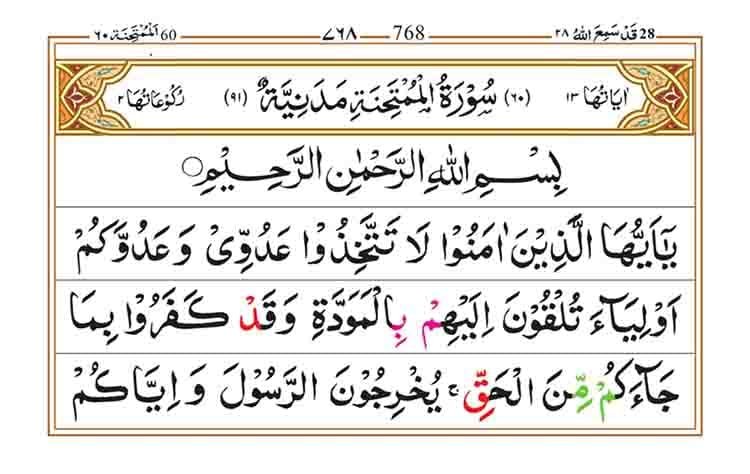 28 قَدْ سَمِعَ اللهُ ٢٨ 768 ٧٦٨ 60 اَلْمُمْتَحِنَة ٦٠
اٰيَاتُهَا ١٣ (٦٠) سُوْرَةُ الْمُمْتَحِنَةِ مَدَنِيَّةٌ (٩١) رُكُوْعَاتُهَا ٢
بِسْمِ اللهِ الرَّحْمٰنِ الرَّحِيْمِ
يٰۤاَيُّهَا الَّذِيْنَ اٰمَنُوْا لَا تَتَّخِذُوْا عَدُوِّىْ وَ عَدُوَّكُمْ
اَوْلِيَآءَ تُلْقُوْنَ اِلَيْهِمْ بِالْمَوَدَّةِ وَ قَدْ كَفَرُوْا بِمَا
جَآءَكُمْ مِّنَ الْحَقِّ ۚ يُخْرِجُوْنَ الرَّسُوْلَ وَ اِيَّاكُمْ